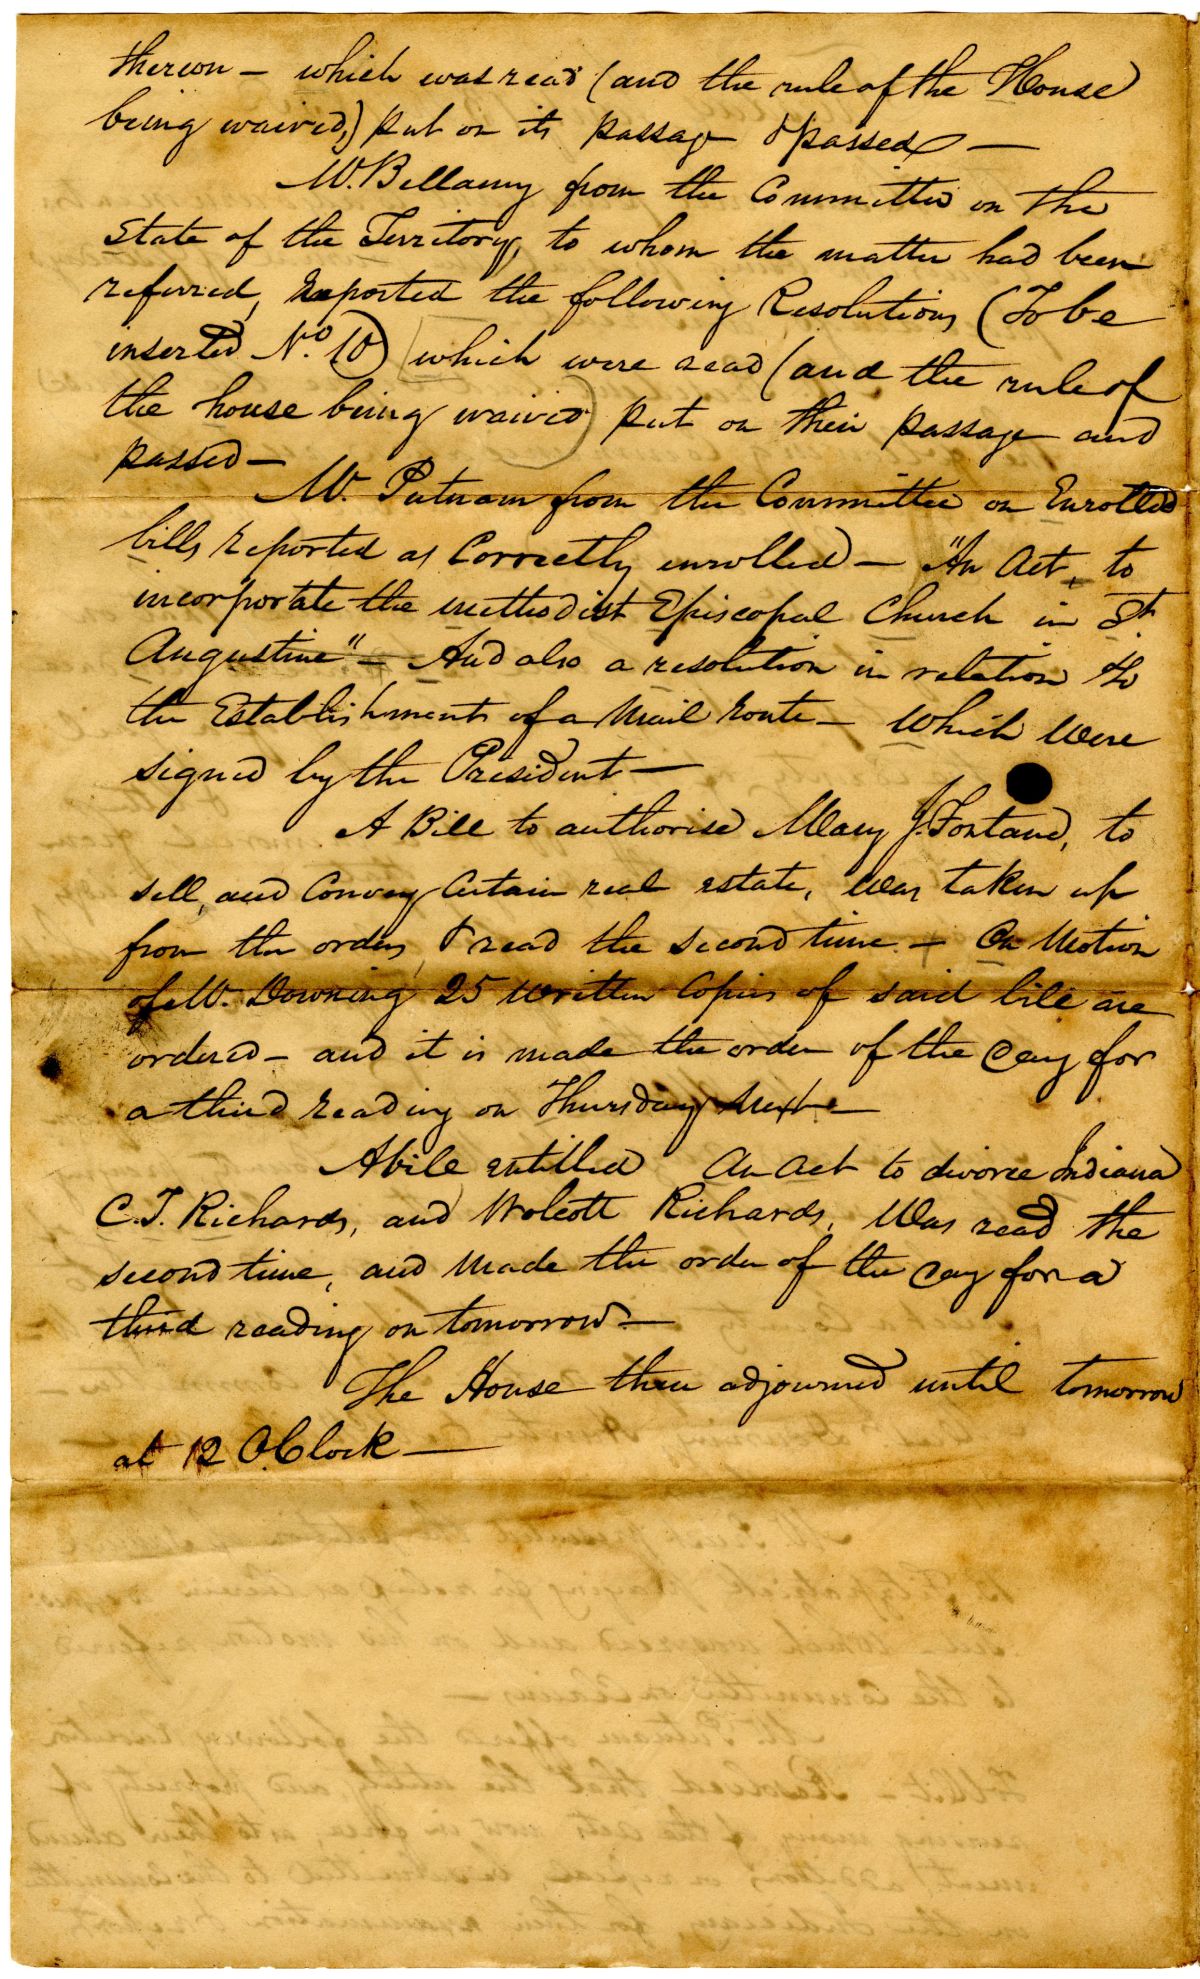 thereon — which was read (and the rule of the House
being waived,) put on its passage & passed —
Mr. Bellamy from the Committee on the
State of the Territory, to whom the matter had been
referred, Reported the following Resolutions (To be
inserted No. 10) which were read (and the rule of
the house being waived) put on their passage and
passed —
Mr. Putnam from the Committee on Enrolled
bills reported as Correctly enrolled — "An Act, to
incorporate the methodist Episcopal Church in St.
Augustine" — And also a resolution in relation to
the Establishment of a Mail route — Which Were
signed by the President —
A Bill to authorise Mary J. Fontane, to
sell, and Convey Certain real estate, Was taken up
from the orders, & read the second time — On Motion
of Mr. Downing 25 written Copies of said bill are
ordered — and it is made the order of the day for
a third reading on Thursday next —
A bill entitled An Act to divorce Indiana
C. T. Richards, and Wolcott Richards, Was read the
second time, and made the order of the day for a
third reading on tomorrow —
The House then adjourned until tomorrow
at 12 O.Clock —